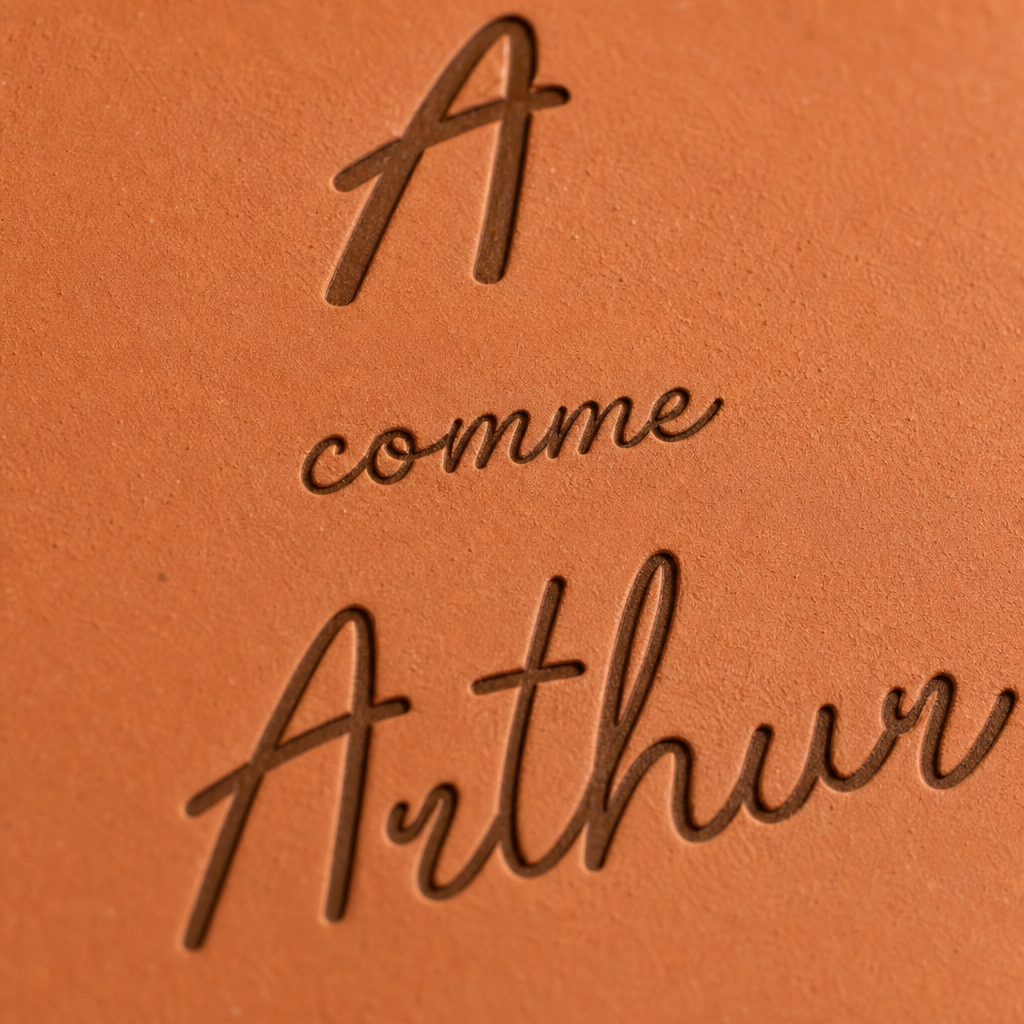 A
comme
Arthur